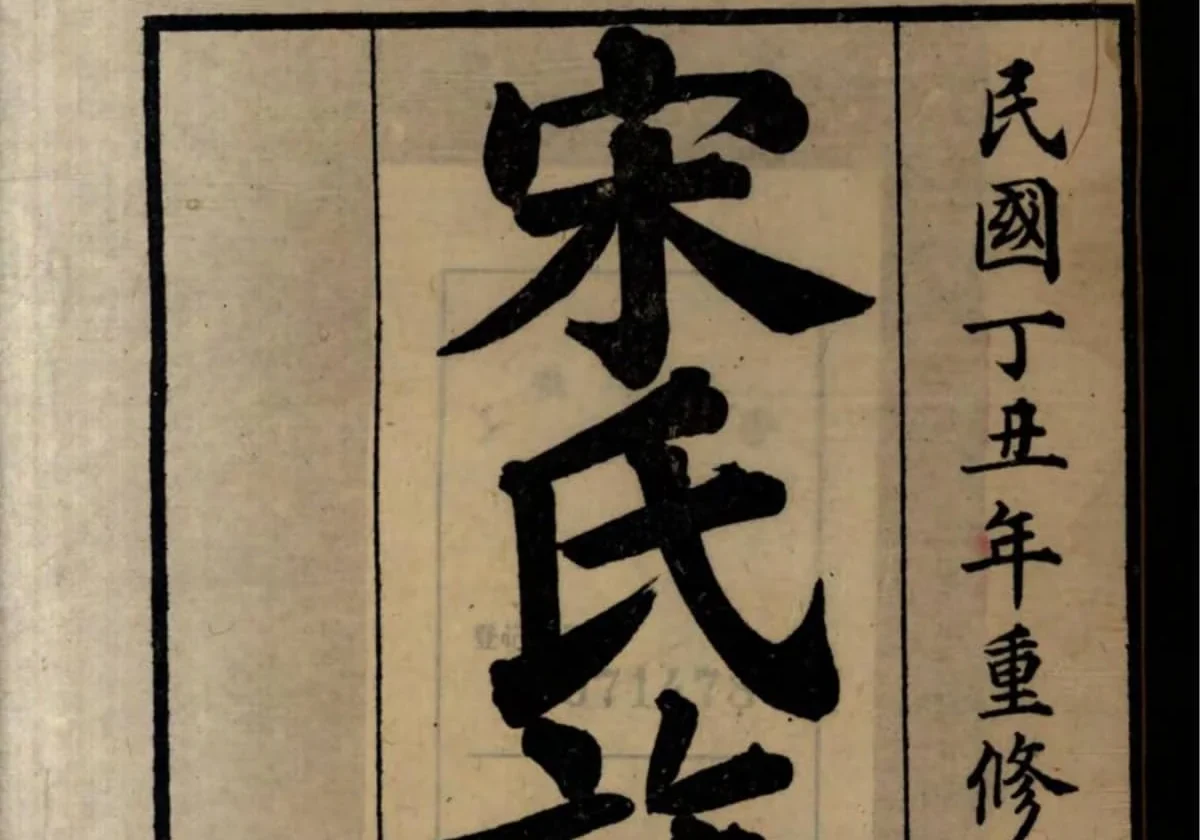 民國丁丑年重修
宋氏